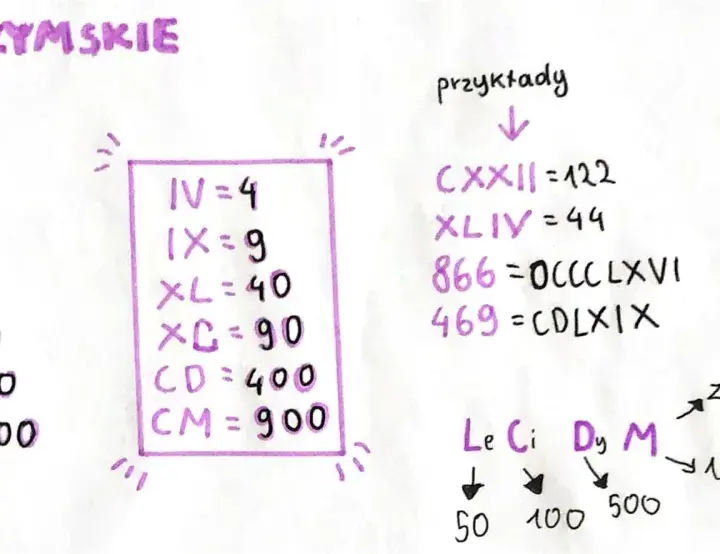 YMSKIE
przykłady
IV = 4
IX = 9
XL = 40
XC = 90
CD = 400
CM = 900
CXXII = 122
XLIV = 44
866 = DCCCLXVI
469 = CDLXIX
0
00
Le Ci Dy M
50 100 500
1